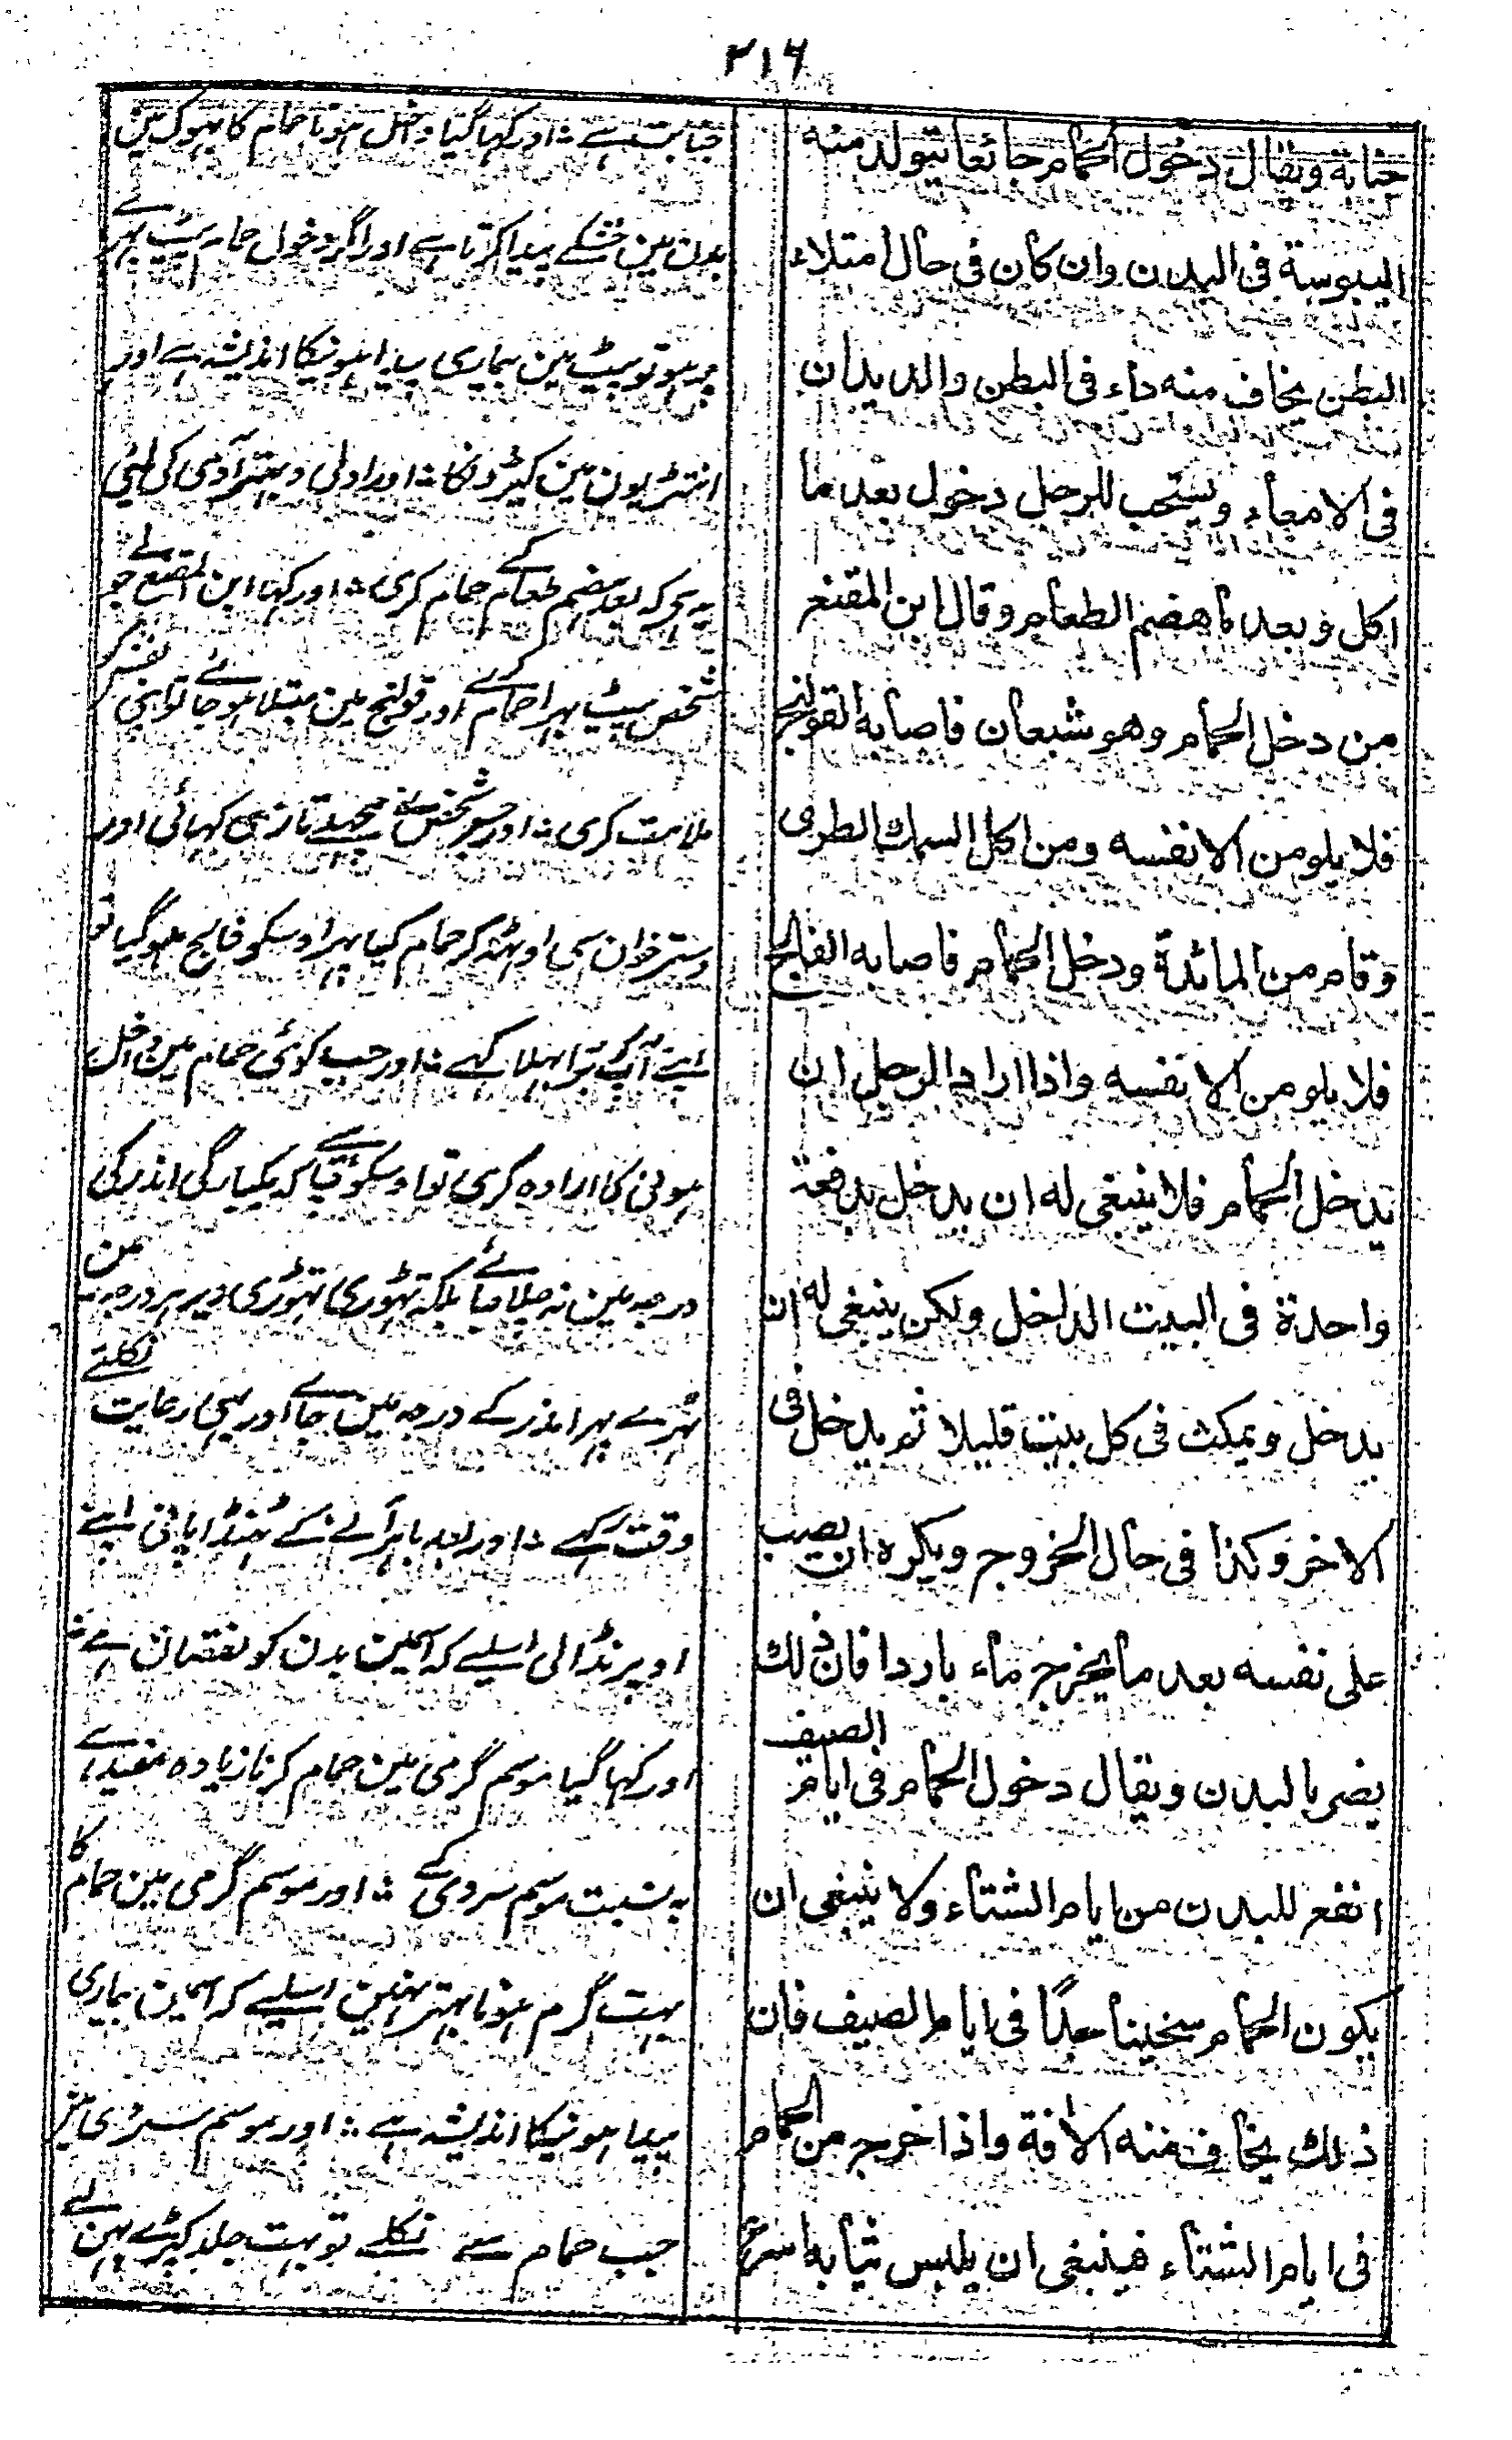 ٢١٦
جنابة ويقال دخول الحمام جائعا تيولد منه
اليبوسة فى البدن وان كان فى حال امتلاء
البطن يخاف منه داء فى البطن والديدان
فى الامعاء ويستحب للرجل دخول بعد ما
اكل و بعد ما هضم الطعام وقال ابن المقنع
من دخل الحمام وهو شبعان فاصابه القولنج
فلا يلومن الا نفسه ومن اكل السمك الطرى
وقام من المائدة ودخل الحمام فاصابه الفالج
فلا يلومن الا نفسه واذا اراد الرجل ان
يدخل الحمام فلا ينبغى له ان يدخل بدفعة
واحدة فى البيت الداخل ولكن ينبغى له ان
يدخل ويمكث فى كل بيت قليلا ثم يدخل فى
الاخر وكذا فى حال الخروج ويكره ان يصب
على نفسه بعد ما يخرج ماء باردا فان ذلك
يضر بالبدن ويقال دخول الحمام فى ايام الصيف
انفع للبدن من ايام الشتاء ولا ينبغى ان
يكون الحمام سخينا جدًا فى ايام الصيف فان
ذلك يخاف منه الافة واذا خرج من الحمام
فى ايام الشتاء فينبغى ان يلبس ثيابه اسرع
جنابت سے ؞ اور کہا گیا داخل ہونا حمام کا بہوک مین
بدن مین خشکے پیدا کرتا ہے اور اگر دخول حمام پیٹ بہرے
پر ہو تو پیٹ مین بیماری پیدا ہونیکا اندیشہ ہے اور
انتڑیون مین کیڑونکا ؞ اور اولی و بہتر آدمی کی لیئی
یہ ہی کہ بعد ہضم طعام کے حمام کری ؞ اور کہا ابن المقنع نے جو
شخص پیٹ بہرا حمام کرے اور قولنج مین مبتلا ہو جائے تو اپنی نفس کو
ملامت کری ؞ اور جو شخص مچہلے تازہ کہائی اور
دسترخوان سی اوٹہکر حمام کیا پہر اوسکو فالج ہو گیا تو
اپنے آپ کو برا بہلا کہے ؞ اور جب کوئی حمام مین داخل
ہونی کا ارادہ کری تو اوسکو چاہئے کہ یکبارگی اندر کی
درجہ مین نہ چلا جائے بلکہ تہوڑی تہوڑی دیر ہر درجہ مین
ٹہرے پہر اندر کے درجہ مین جائے اور یہی رعایت نکلتے
وقت رکہے ؞ اور بعد باہر آنے کے ٹہنڈا پانی اپنے
اوپر نڈالی اسلیے کہ اسمین بدن کو نقصان ہے ؞
اور کہا گیا موسم گرمی مین حمام کرنا زیادہ مفید ہے
بہ نسبت موسم سردی کے ؞ اور موسم گرمی مین حمام کا
بہت گرم ہونا بہتر نہین اسلیے کہ اسمین بیماری
پیدا ہونیکا اندیشہ ہے ؞ اور موسم سردی مین
جب حمام سے نکلے تو بہت جلد کپڑے پہن لے